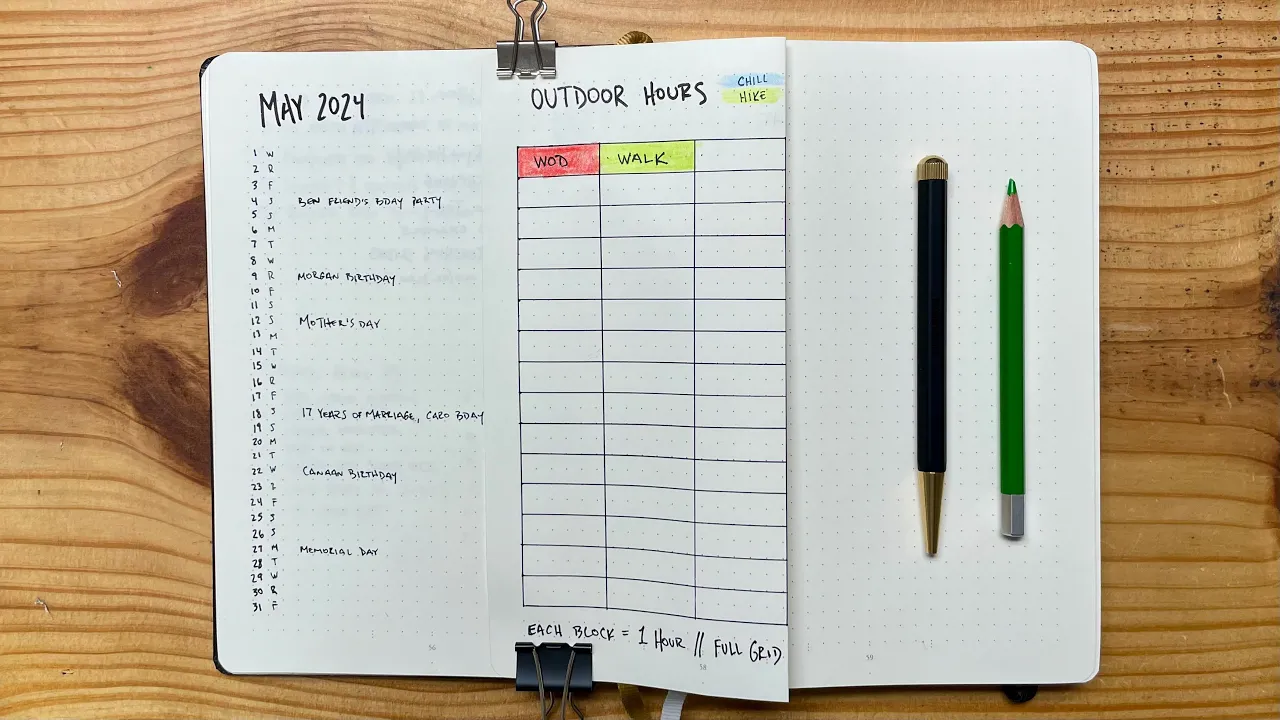 MAY 2024
1 W
2 R
3 F
4 S BEN FRIEND'S BDAY PARTY
5 S
6 M
7 T
8 W
9 R MORGAN BIRTHDAY
10 F
11 S
12 S MOTHER'S DAY
13 M
14 T
15 W
16 R
17 F
18 S 17 YEARS OF MARRIAGE, CARO BDAY
19 S
20 M
21 T
22 W CANAAN BIRTHDAY
23 R
24 F
25 S
26 S
27 M MEMORIAL DAY
28 T
29 W
30 R
31 F
56
OUTDOOR HOURS
CHILL
HIKE
WOD WALK
EACH BLOCK = 1 HOUR // FULL GRID
58
59